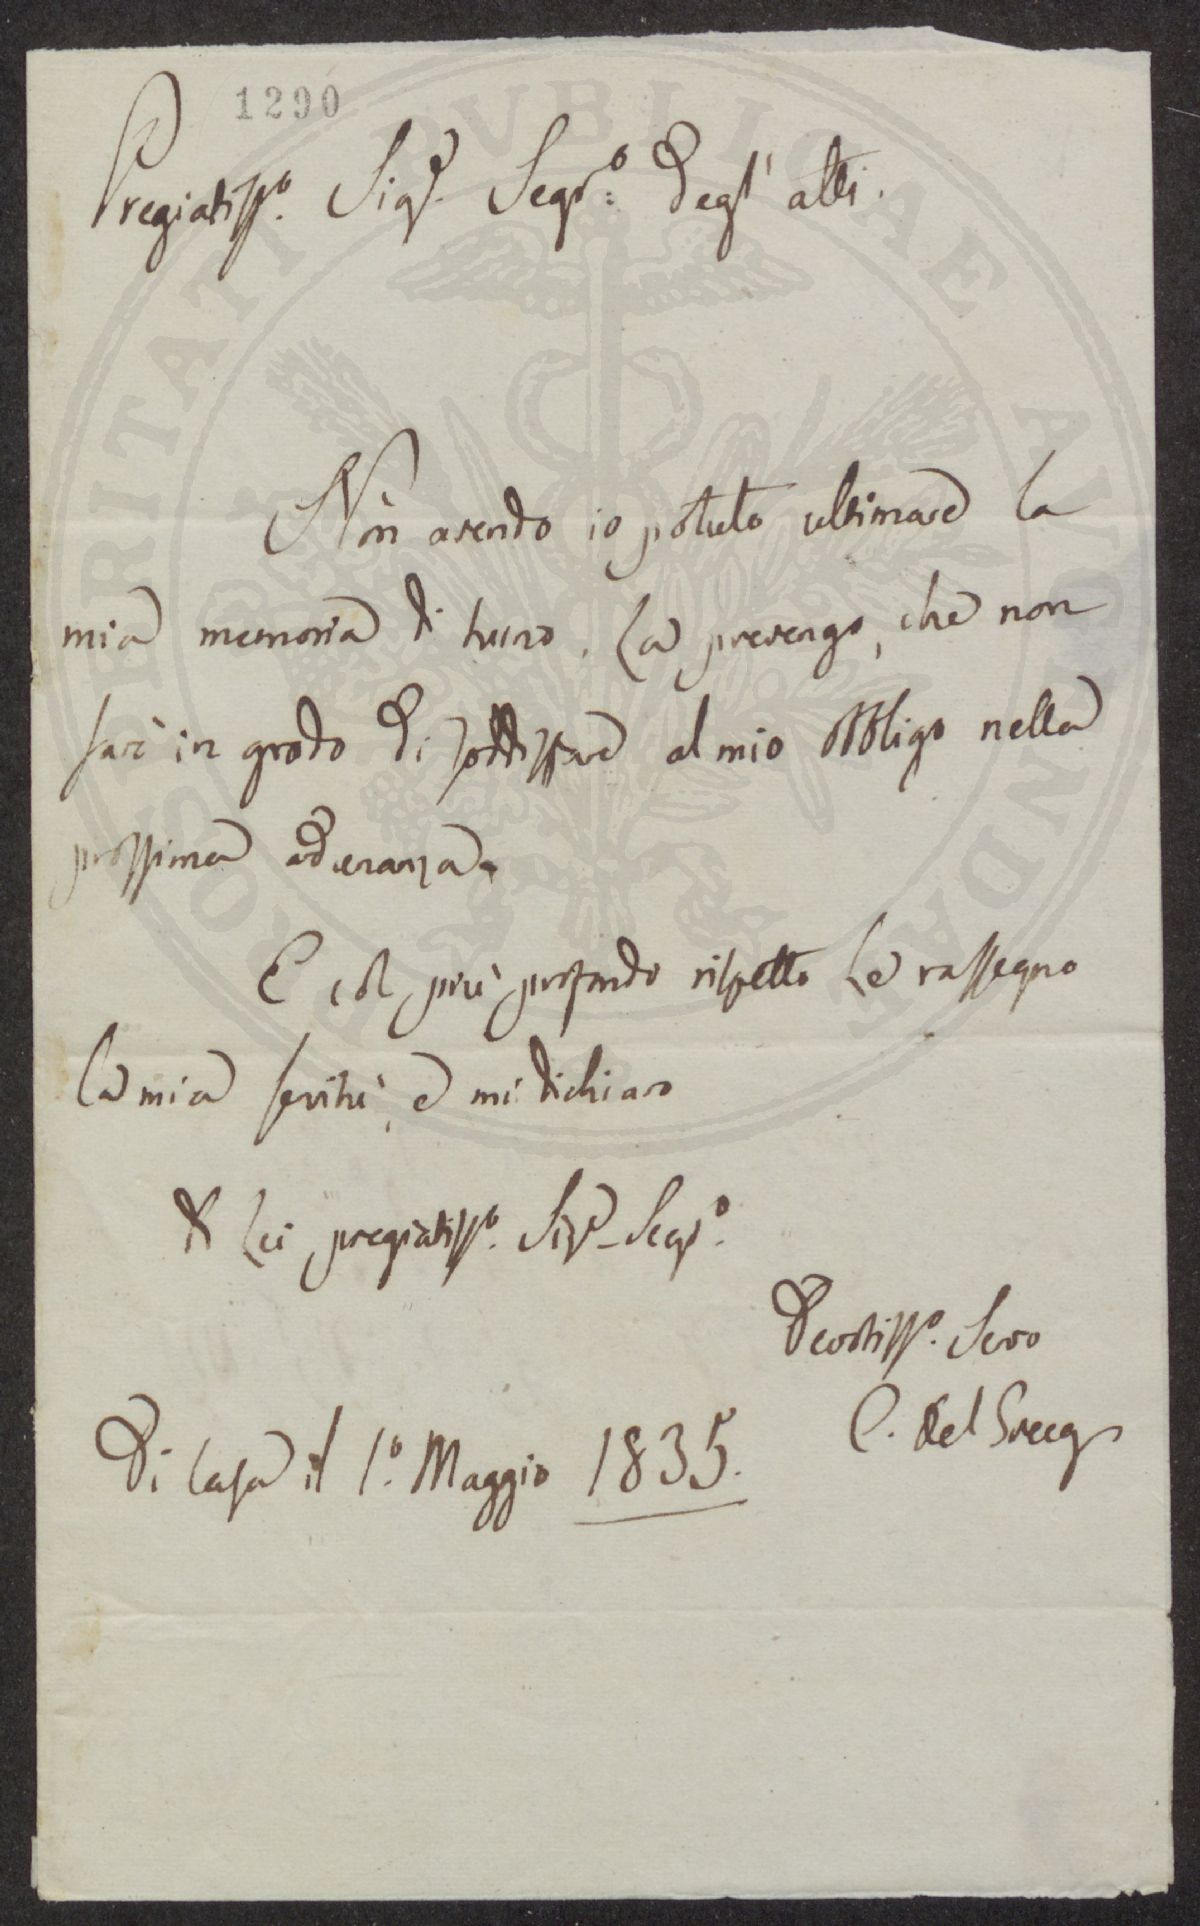 1290
Pregiatiss.º Sig.e Segr.º degl' atti.
Non avendo io potuto ultimare la
mia memoria di turno, La prevengo, che non
sarò in grado di soddisfare al mio obbligo nella
prossima adunanza.
E col più profondo rispetto Le rassegno
la mia servitù, e mi dichiaro
di Lei pregiatiss.º Sig.e Segr.º
Devotiss.º Servo
C. del Greco
Di Casa il 1.º Maggio 1835.
PROSPERITATI PVBLICAE AVGENDAE